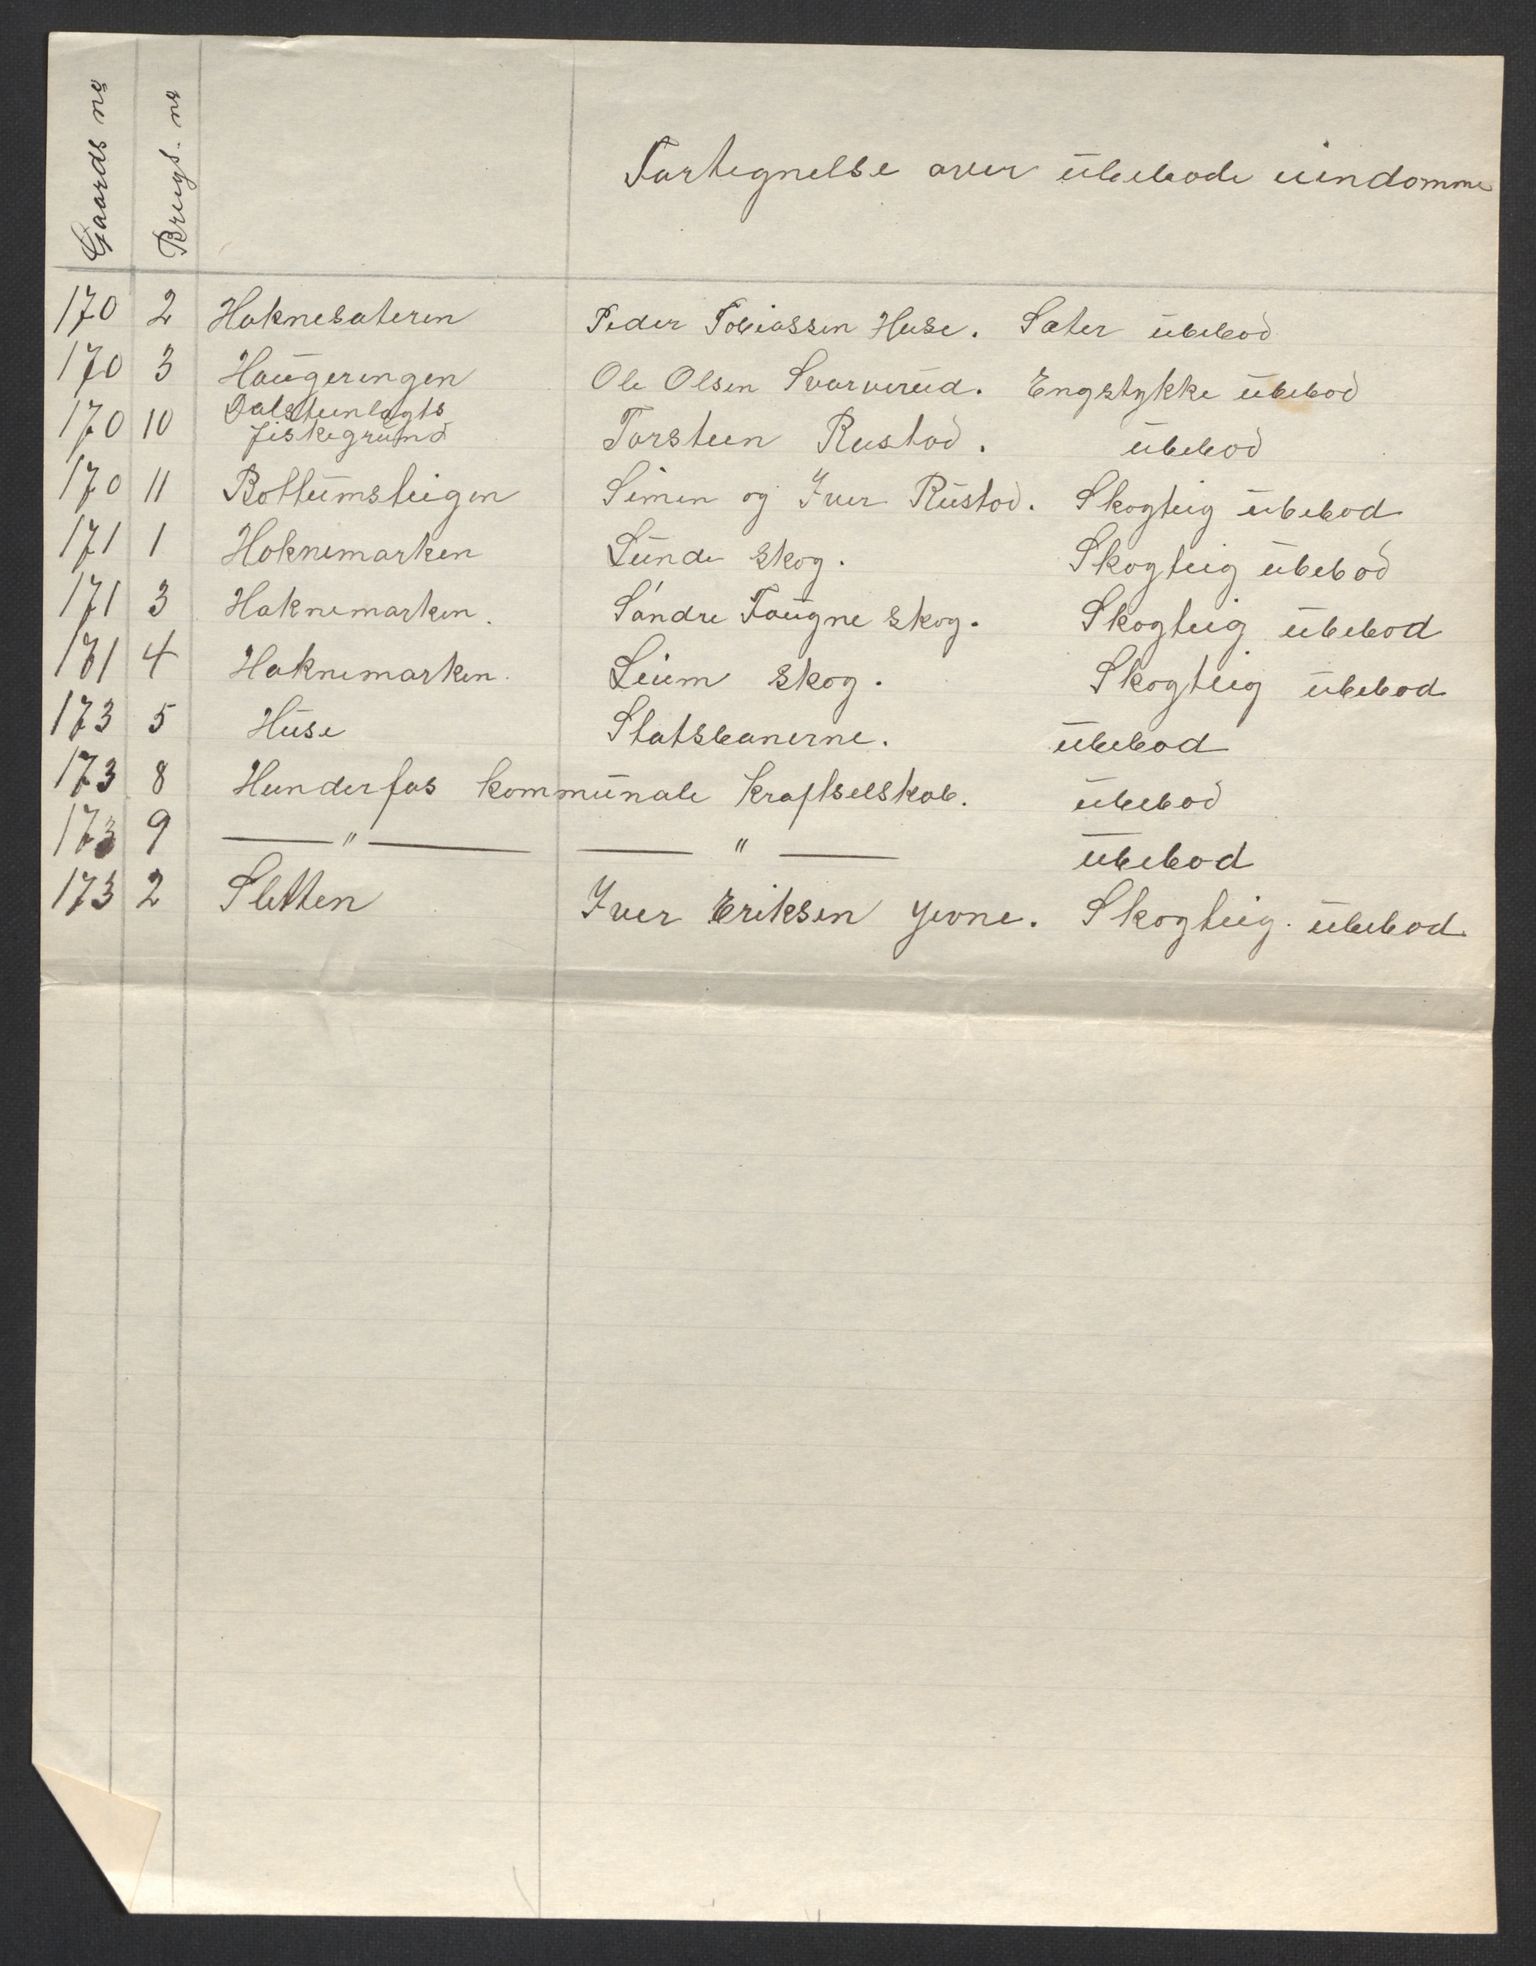 Gaards no Brugs. no Fortegnelse over ubebode eiendomme
170 2 Haknesæteren Peder Tobiassen Huse. Sæter ubebod
170 3 Haugeringen Ole Olsen Svarverud. Engstykke ubebod
170 10 Dalsteinlagts fiskegrund Torstein Rustad. ubebod
170 11 Bottumsteigen Simen og Iver Rustad. Skogteig ubebod
171 1 Haknemarken Lunde skog. Skogteig ubebod
171 3 Haknemarken. Søndre Faugne skog. Skogteig ubebod
171 4 Haknemarken. Leium skog. Skogteig ubebod
173 5 Huse Statsbanerne. ubebod
173 8 Hunderfos kommunale kraftselskab. ubebod
173 9 — " — — " — ubebod
173 2 Sletten Iver Eriksen Jevne. Skogteig. ubebod.